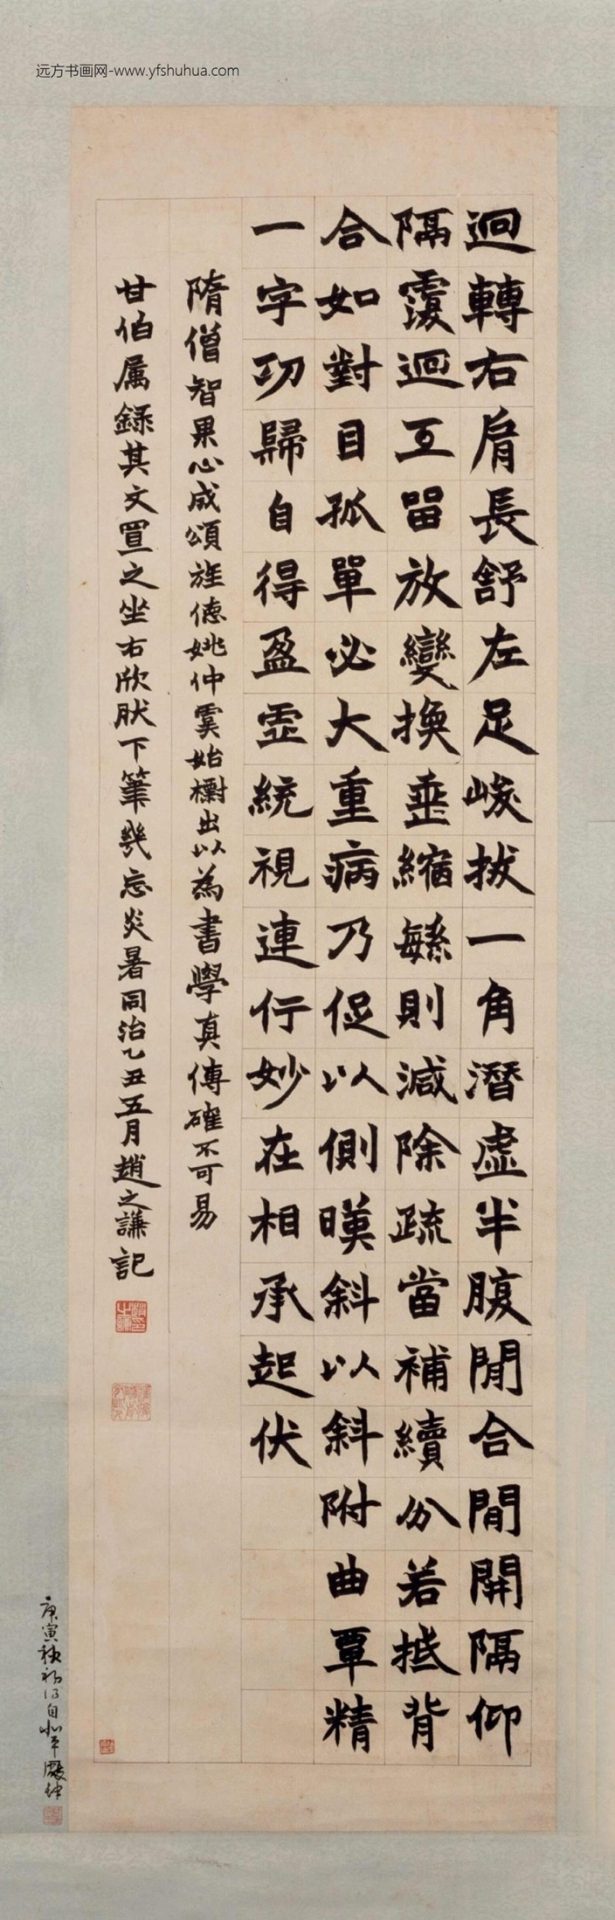 远方书画网-www.yfshuhua.com
迴轉右肩長舒左足峻拔一角潛虛半腹閒合間開隔仰
隔覆迴互留放變換垂縮繇則減除疏當補續分若抵背
合如對目孤單必大重病乃促以側暎斜以斜附曲覃精
一字功歸自得盈虛統視連行妙在相承起伏
隋僧智果心成頌旌德姚仲虞始櫥出以為書學真傳確不可易
甘伯屬錄其文置之坐右欣肰下筆幾忘炎暑同治乙丑五月趙之謙記
庚寅秋初得自北平